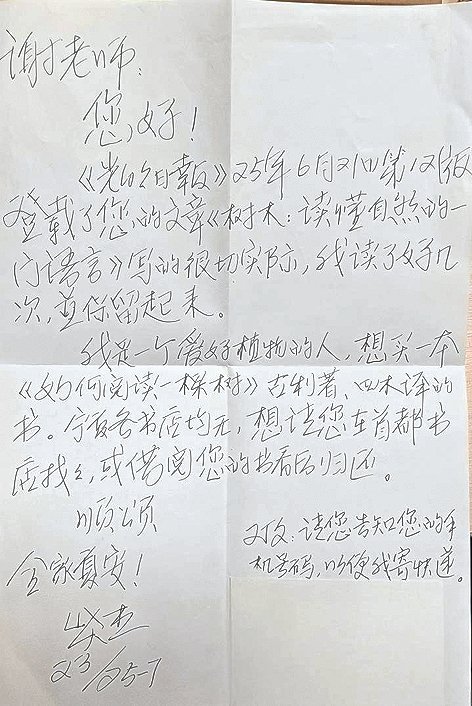 谢老师:
您好!
《光明日报》25年6月21日第12版
登载了您的文章《树木:读懂自然的一
门语言》写的很切实际,我读了好几
次,并保留起来。
我是一个爱好植物的人,想买一本
《如何阅读一棵树》古利著、四木译的
书。宁夏各书店均无,想请您在首都书
店找找,或借阅您的书看后归还。
顺颂
全家夏安!
又及:请您告知您的手
机号码,以便我寄快递。
23/25-7